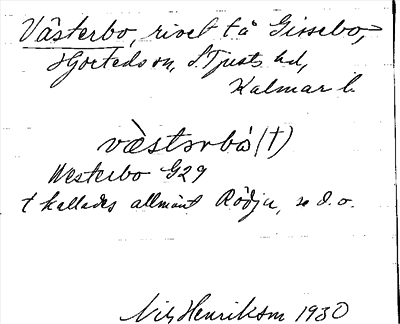 Västerbo, rivet tå Gissebo,
Hjorteds sn, S. Tjusts hd,
Kalmar l.
væ̀stərbó (†)
Westerbo G29
† kallades allmänt Rödju, se d. o.
Nils Henriksson 1930